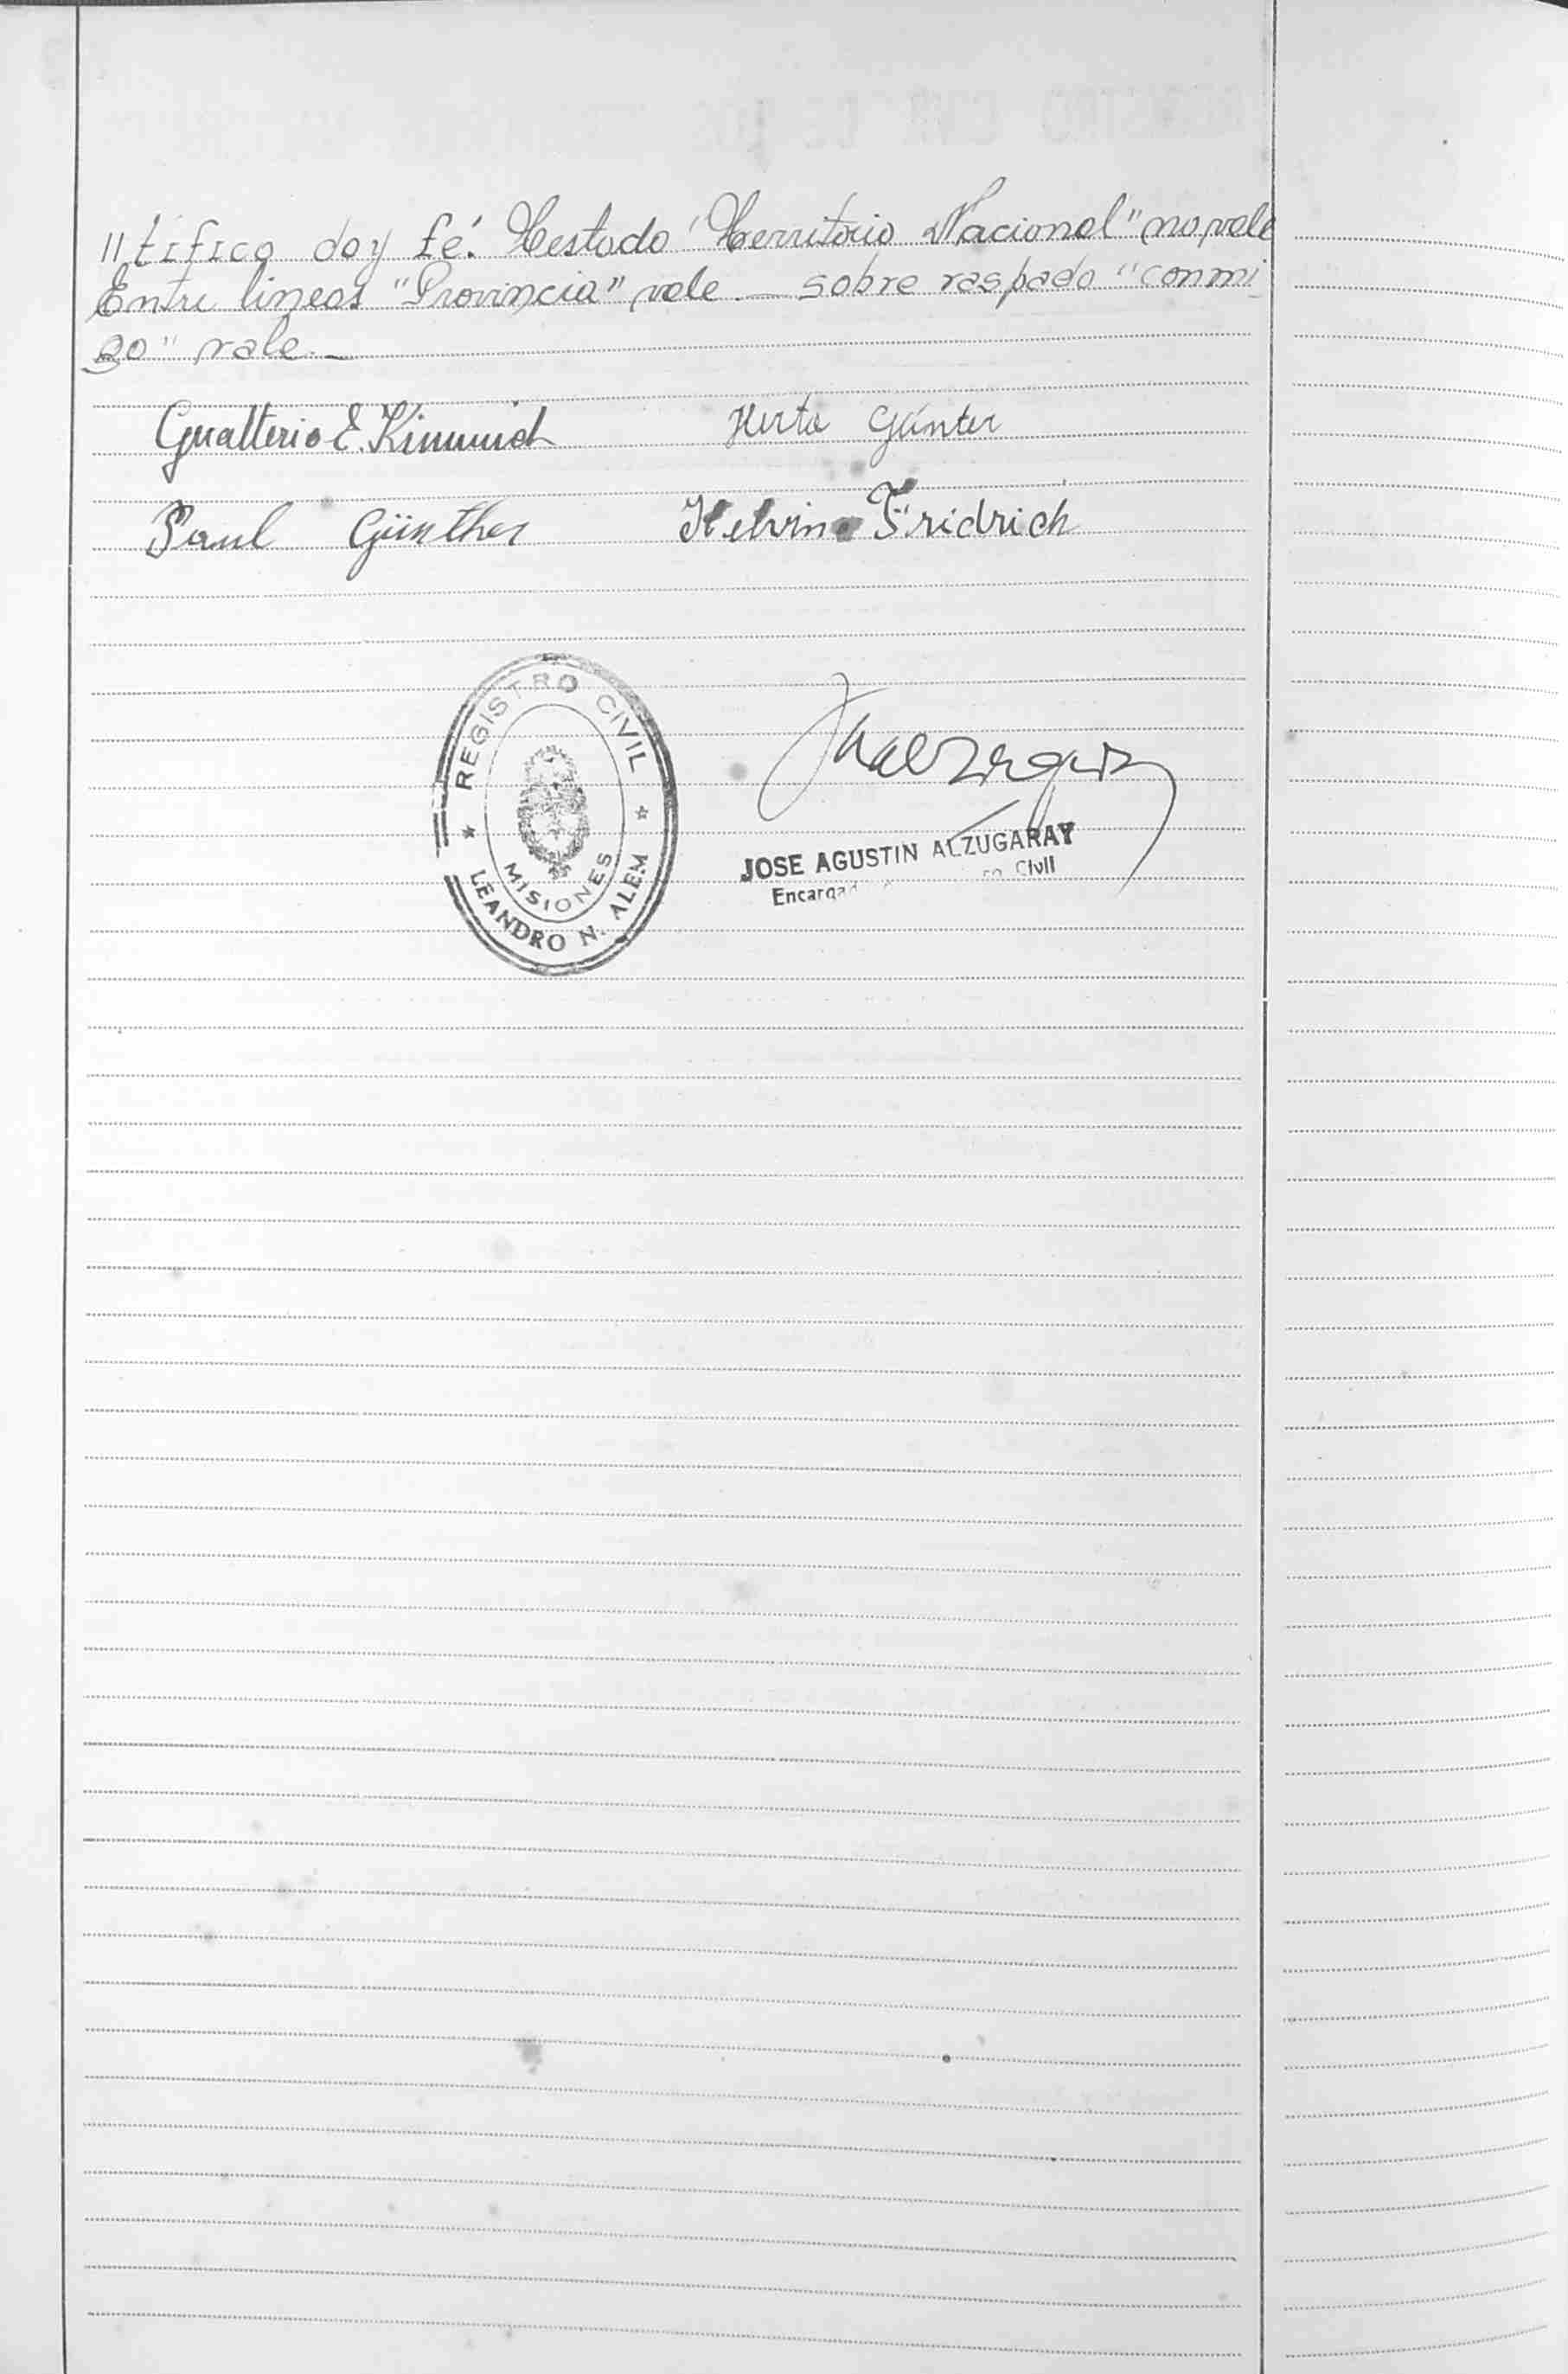 //tifico doy fé. Testado "Territorio Nacional" no vale
Entre lineas "Provincia" vale.— sobre raspado "conmi
go" vale.—
Gualterio E. Kimmich Herta Günter
Paul Günther Helvina Fridrich
REGISTRO CIVIL
MISIONES
LEANDRO N. ALEM
JOSE AGUSTIN ALZUGARAY
Civil